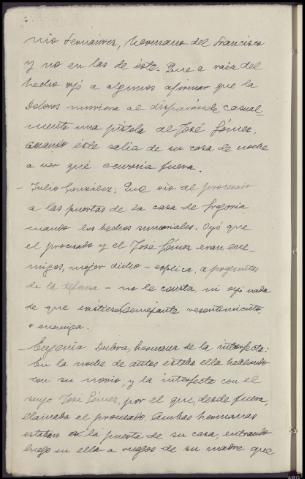 nio Fernández, hermano del Francisco
y no en las de éste. Que a raíz del
hecho oyó a algunos afirmar que la
Dolores muriera al disparársele casual-
mente una pistola de José Gómez,
cuando éste salía de su casa de noche
a ver qué ocurría fuera.
- Julio González: Que vio al procesado
a las puertas de su casa de
cuando los hechos sumariales. Oyó que
el procesado y el José Gómez eran ene-
migos, mejor dicho - explica, a preguntas
de la - no le consta ni oyó nada
de que existiera semejante resentimiento
o enemiga.
- Eugenia hermana de la interfecta:
En la noche de autos estaba ella hablando
con su novio, y la interfecta con el
suyo José Gómez, por el que, desde fuera,
llamaba el procesado. Ambas hermanas
estaban en la puerta de su casa, entrando
luego en ella a ruegos de su madre que